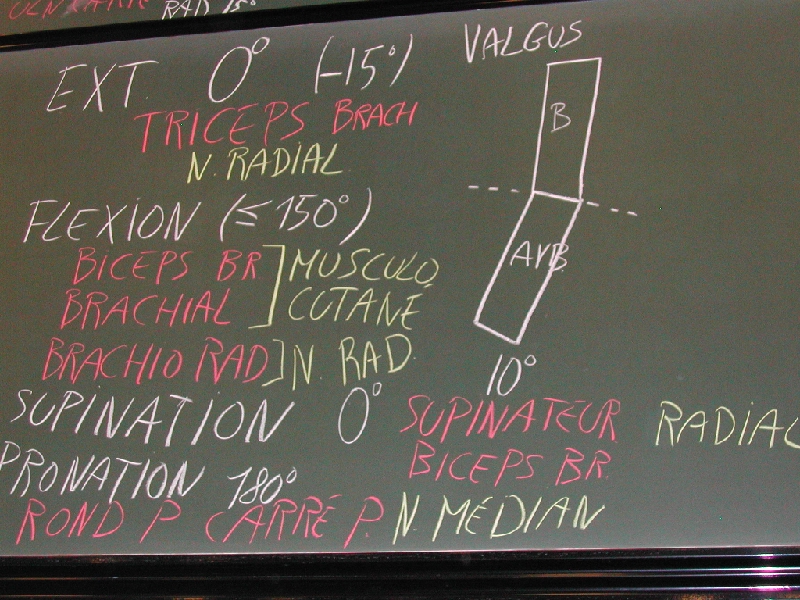 RAD 15°
EXT. 0° (-15°)
TRICEPS BRACH
N. RADIAL
FLEXION (≤ 150°)
BICEPS BR ] MUSCULO
BRACHIAL CUTANÉ
BRACHIO RAD ] N. RAD.
SUPINATION 0° SUPINATEUR RADIAL
BICEPS BR.
PRONATION 180°
ROND P CARRÉ P. N. MÉDIAN
VALGUS
B
AVB
10°